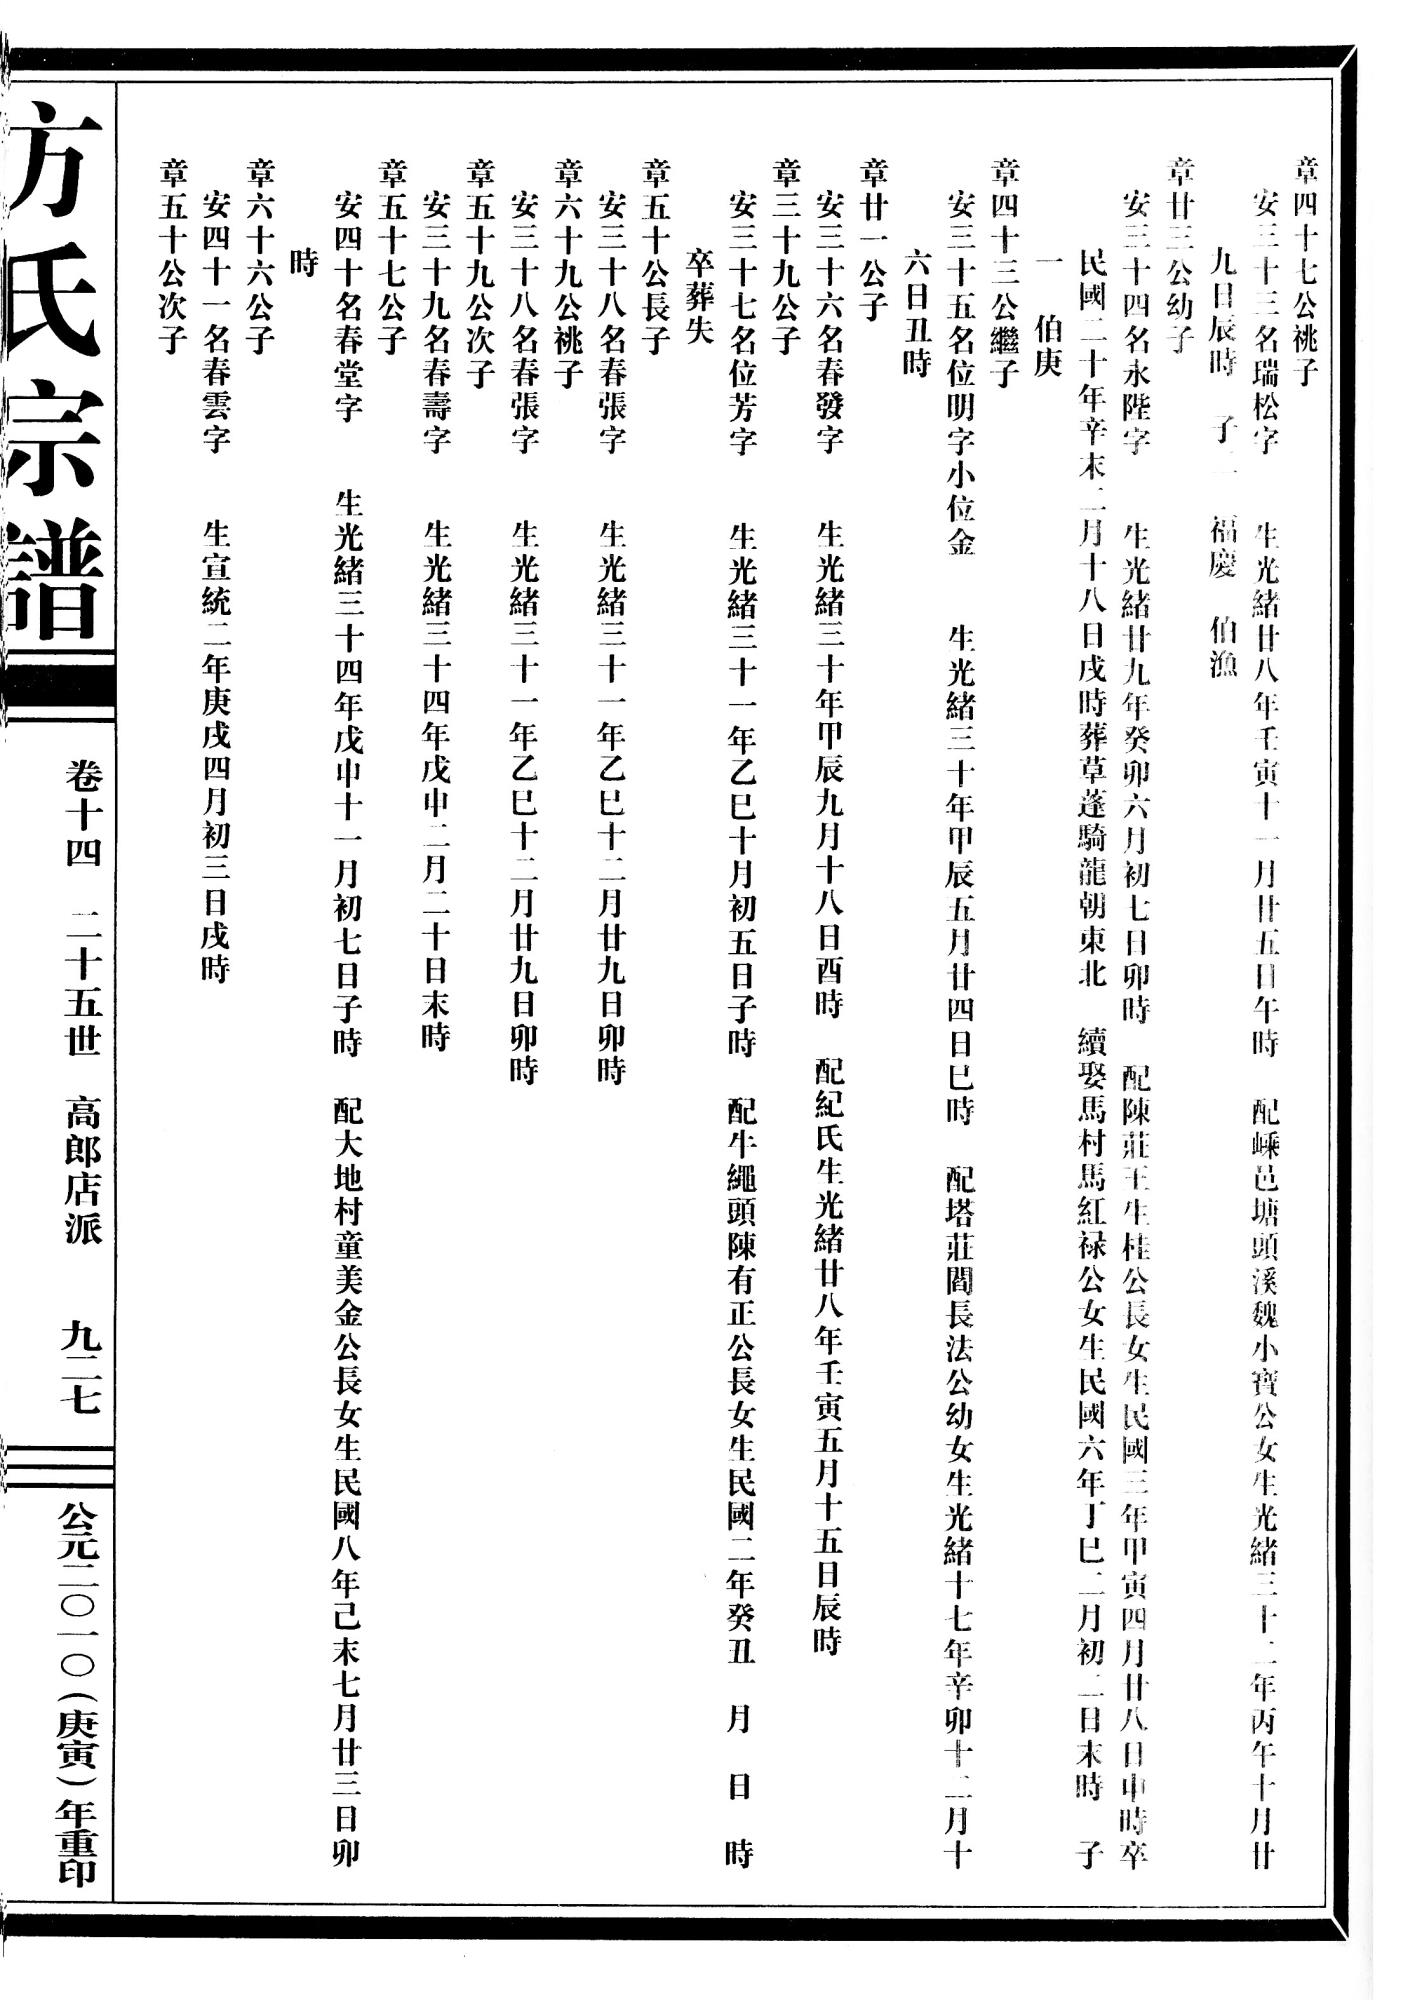 章四十七公祧子
安三十三名瑞松字　生光緒廿八年壬寅十一月廿五日午時　配嵊邑塘頭溪魏小寶公女生光緒三十二年丙午十月廿
九日辰時　子二　福慶　伯漁
章廿三公幼子
安三十四名永陛字　生光緒廿九年癸卯六月初七日卯時　配陳莊王生桂公長女生民國三年甲寅四月廿八日申時卒
民國二十年辛末二月十八日戌時葬草蓬騎龍朝東北　續娶馬村馬紅禄公女生民國六年丁巳二月初二日末時　子
一　伯庚
章四十三公繼子
安三十五名位明字小位金　生光緒三十年甲辰五月廿四日巳時　配塔莊閻長法公幼女生光緒十七年辛卯十二月十
六日丑時
章廿一公子
安三十六名春發字　生光緒三十年甲辰九月十八日酉時　配紀氏生光緒廿八年壬寅五月十五日辰時
章三十九公子
安三十七名位芳字　生光緒三十一年乙巳十月初五日子時　配牛繩頭陳有正公長女生民國二年癸丑　月　日　時
卒葬失
章五十公長子
安三十八名春張字　生光緒三十一年乙巳十二月廿九日卯時
章六十九公祧子
安三十八名春張字　生光緒三十一年乙巳十二月廿九日卯時
章五十九公次子
安三十九名春壽字　生光緒三十四年戊申二月二十日末時
章五十七公子
安四十名春堂字　生光緒三十四年戊申十一月初七日子時　配大地村童美金公長女生民國八年己末七月廿三日卯
時
章六十六公子
安四十一名春雲字　生宣統二年庚戌四月初三日戌時
章五十公次子
方氏宗譜
卷十四　二十五世　高郎店派　九二七
公元二〇一〇(庚寅)年重印